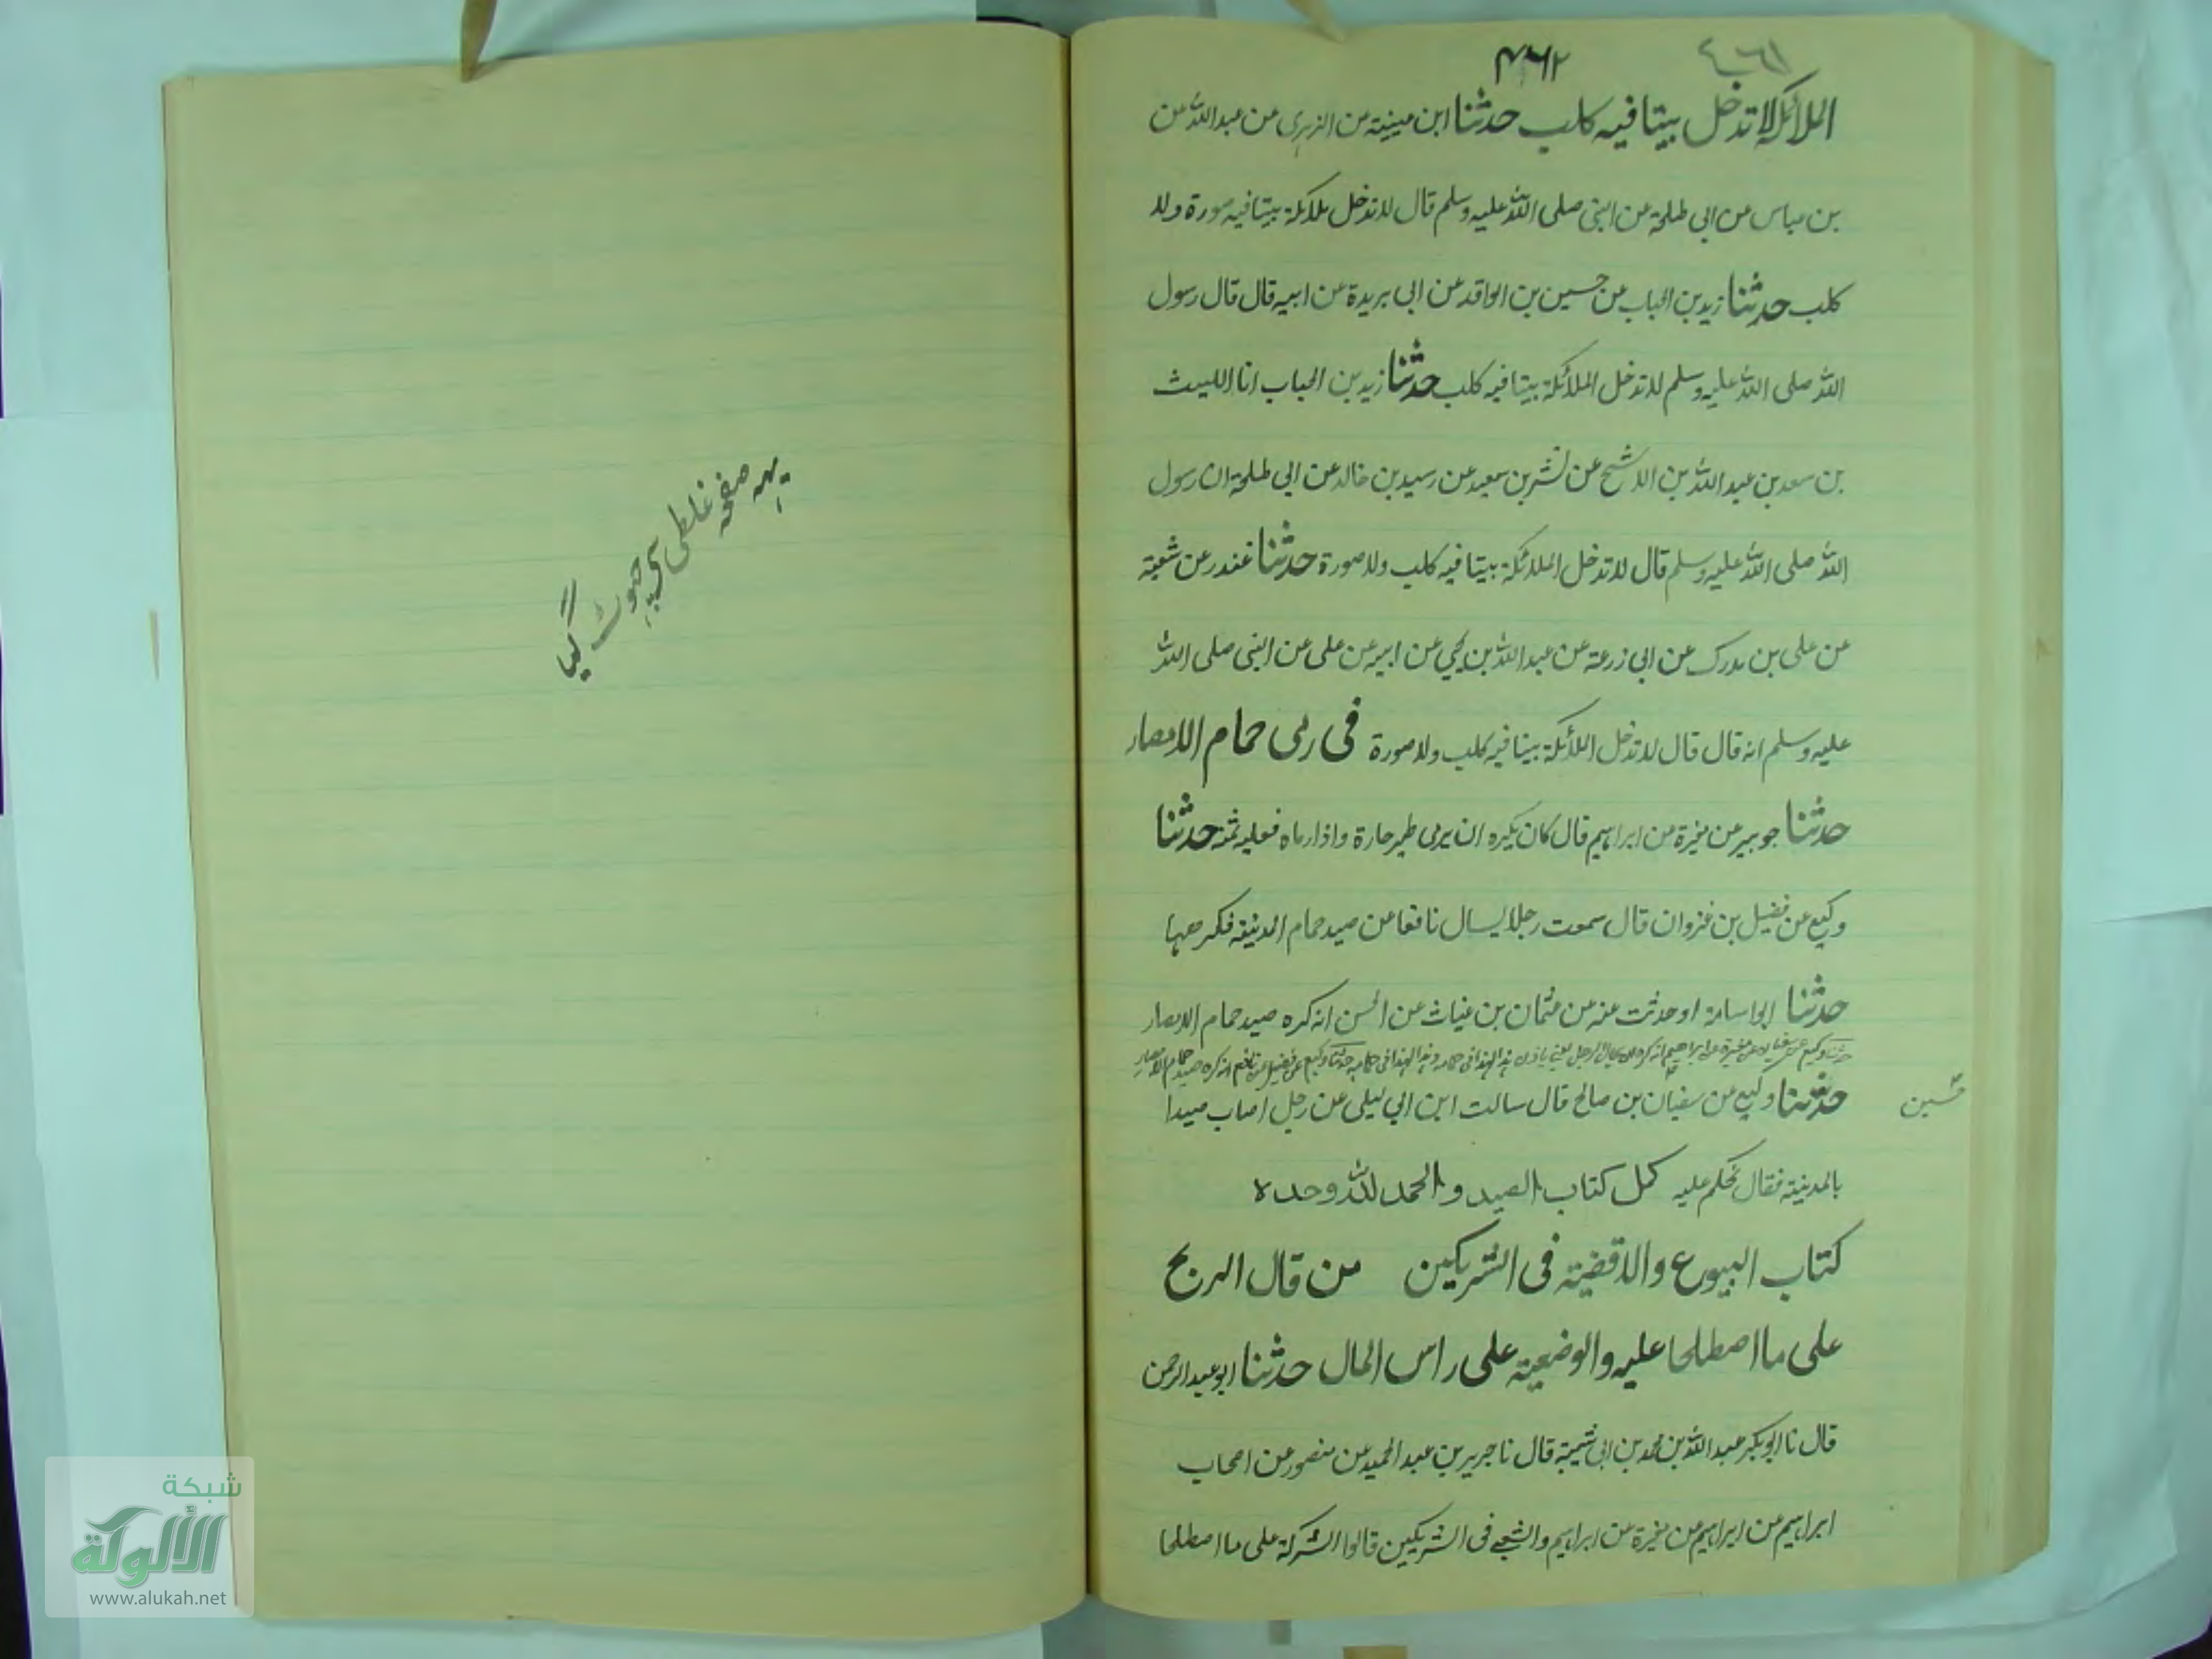 ٤٦١
٤٦٢
الملائكة لا تدخل بيتا فيه كلب حدثنا ابن عيينة عن الزهري عن عبد الله عن
بن عباس عن ابي طلحة عن النبي صلى الله عليه وسلم قال لا تدخل ملائكة بيتا فيه صورة ولا
كلب حدثنا زيد بن الحباب عن حسين بن الواقد عن ابي بريدة عن ابيه قال قال رسول
الله صلى الله عليه وسلم لا تدخل الملائكة بيتا فيه كلب حدثنا زيد بن الحباب انا الليث
بن سعد بن عبد الله بن الاشج عن بشر بن سعيد عن رسيد بن خالد عن ابي طلحة ان رسول
الله صلى الله عليه وسلم قال لا تدخل الملائكة بيتا فيه كلب ولا صورة حدثنا غندر عن شعبة
عن علي بن مدرك عن ابي زرعة عن عبد الله بن يحي عن ابيه عن علي عن النبي صلى الله
عليه وسلم انه قال قال لا تدخل الملائكة بيتا فيه كلب ولا صورة في رمى حمام الامصار
حدثنا جوبير عن مغيرة عن ابراهيم قال كان يكره ان يرمى طير جارة واذا رماه فعليه ثمنه حدثنا
وكيع عن فضيل بن غزوان قال سمعت رجلا يسال نافعا عن صيد حمام المدينة فكرهها
حدثنا ابو اسامة او حدثت عنه عن عثمان بن غياث عن الحسن انه كره صيد حمام الامصار
حدثنا وكيع عن سفيان عن مغيرة عن ابراهيم انه كره حدثنا وكيع عن فضيل عن نافع انه كره صيد حمام الامصار
حدثنا وكيع عن سفيان بن صالح قال سالت ابن ابي ليلى عن رجل اصاب صيدا
بالمدينة فقال يحكم عليه كمل كتاب الصيد والحمد لله وحده
كتاب البيوع والاقضية في الشريكين من قال الربح
على ما اصطلحا عليه والوضيعة على راس المال حدثنا ابو عبد الرحمن
قال نا ابو بكر عبد الله بن محمد بن ابي شيبة قال نا جرير بن عبد الحميد عن منصور عن اصحاب
ابراهيم عن ابراهيم عن مغيرة عن ابراهيم والشعبي في الشريكين قالوا الشركة على ما اصطلحا
یہہ صفحہ غلطی سی چہوٹ گیا
شبكة
الألوكة
www.alukah.net